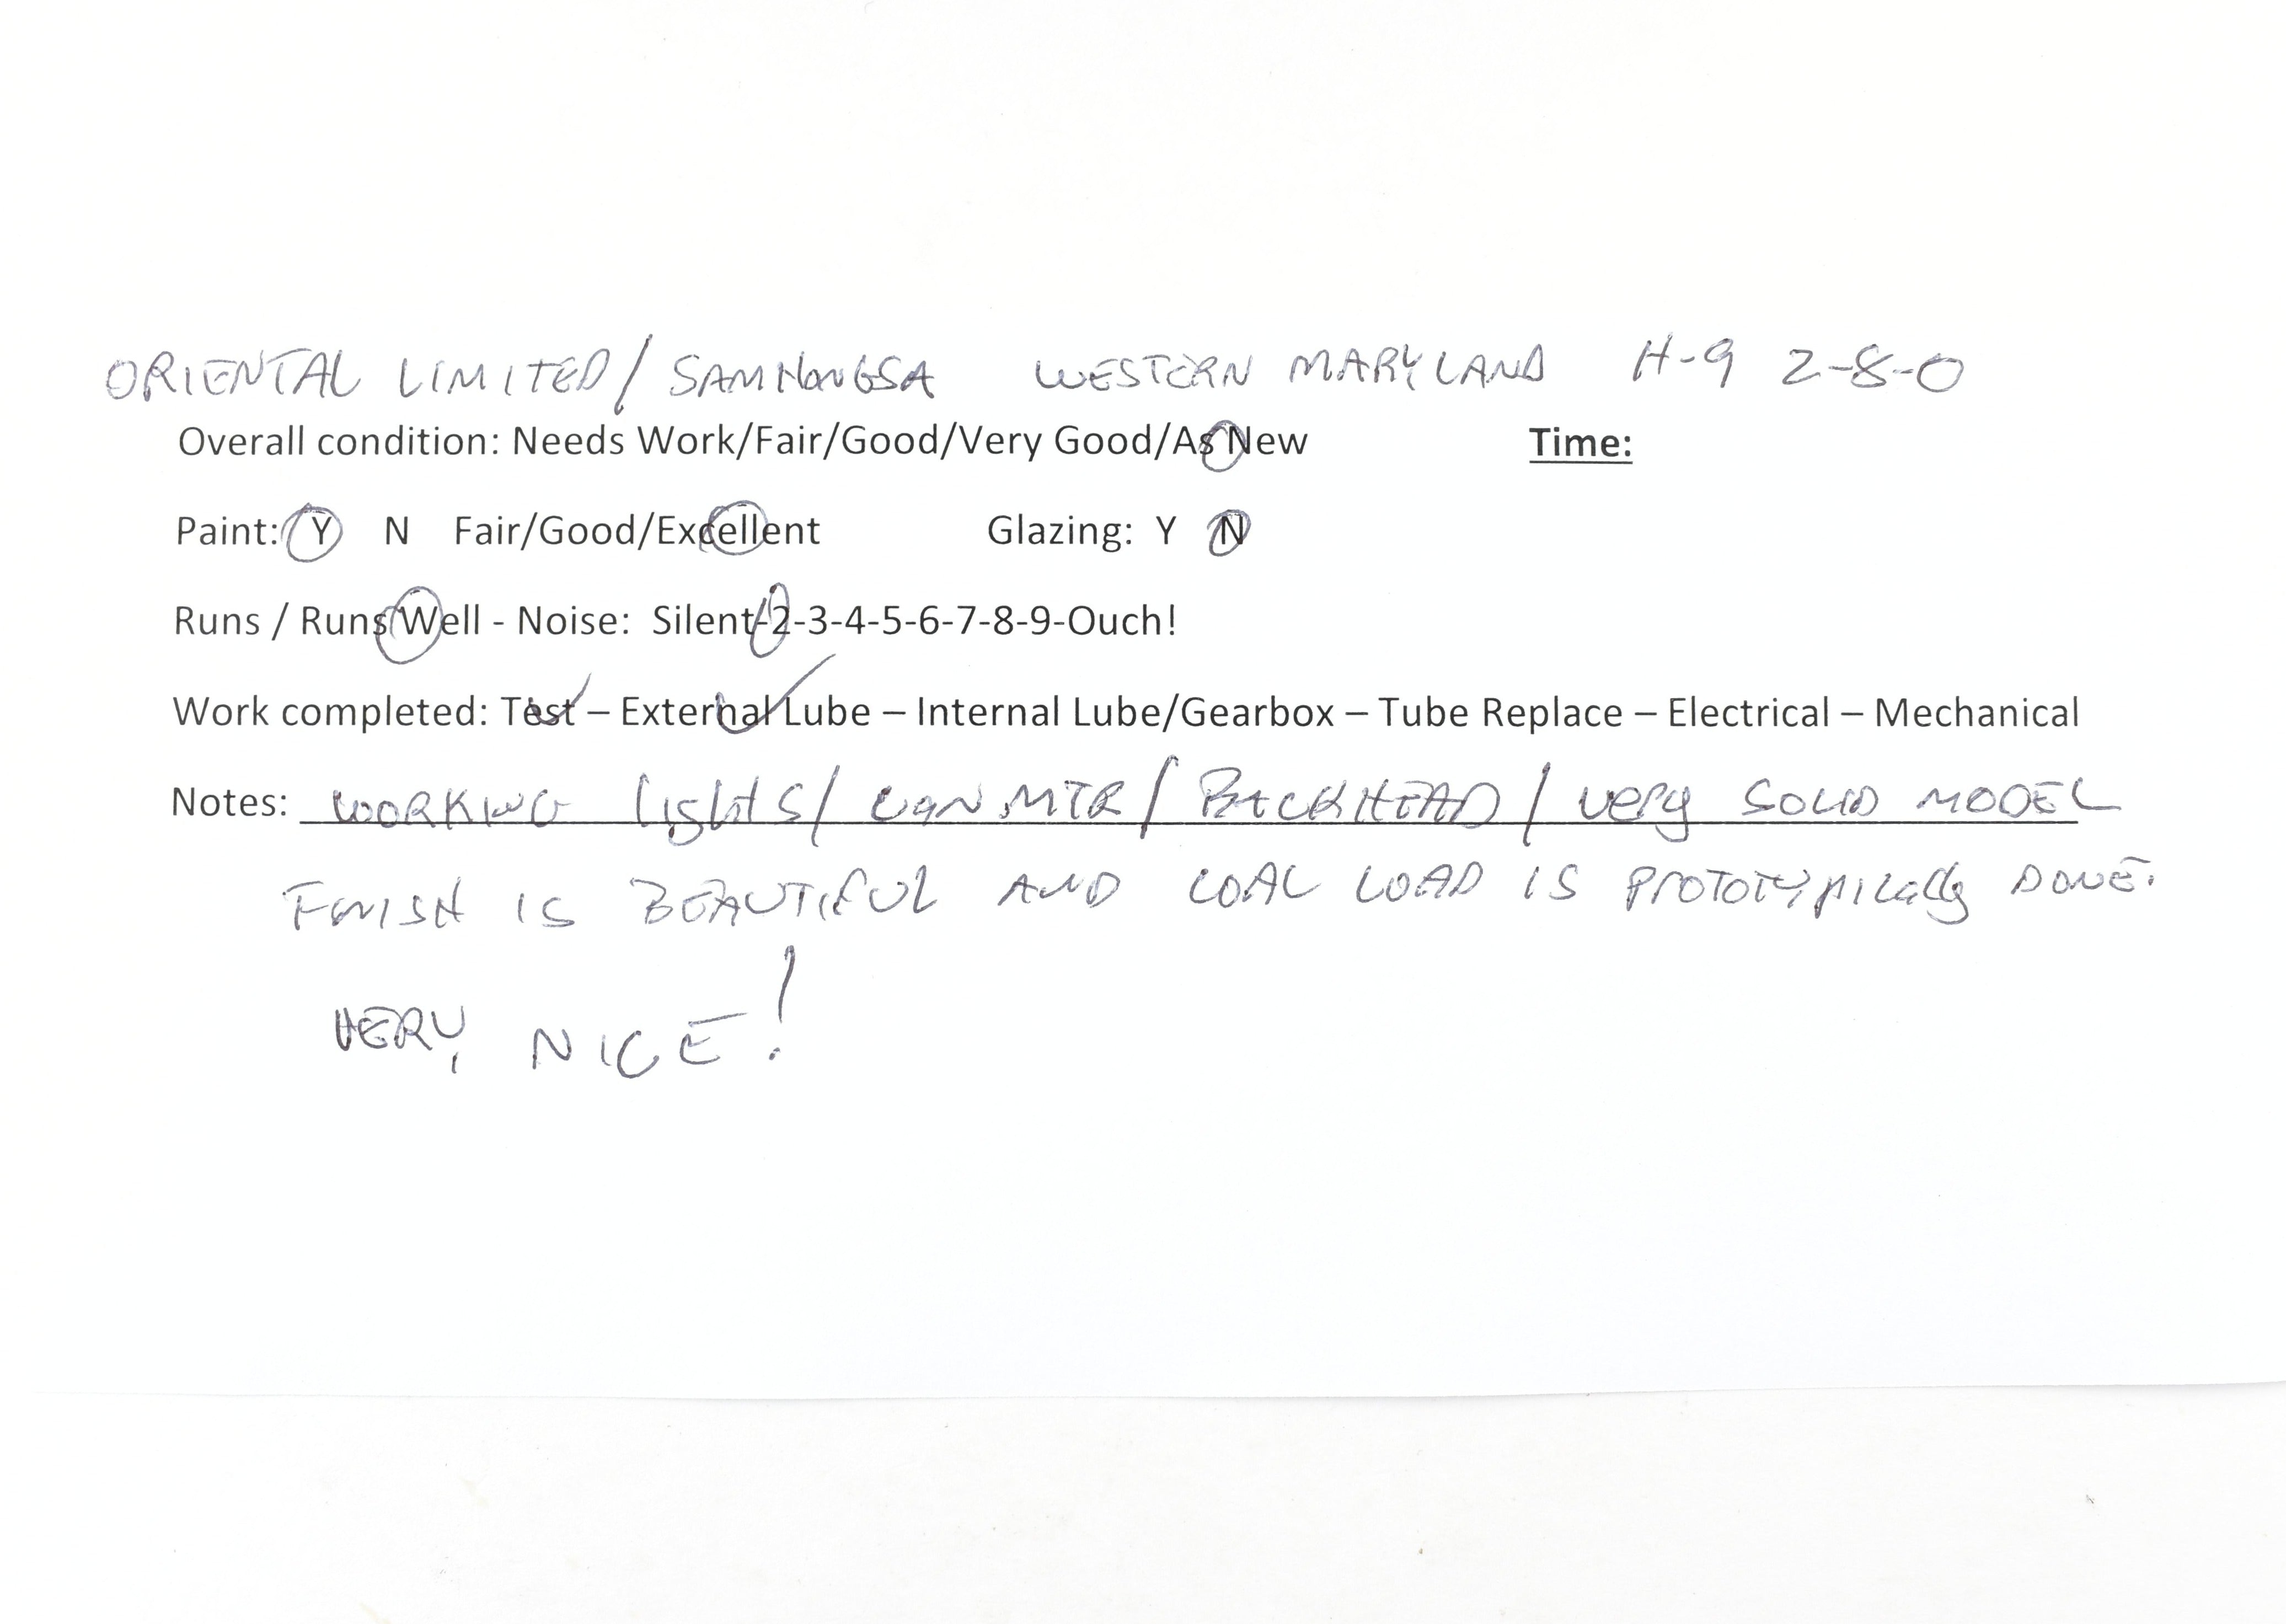 ORIENTAL LIMITED/SAMHONGSA WESTERN MARYLAND H-9 2-8-0
Overall condition: Needs Work/Fair/Good/Very Good/As New Time:
Paint: Y N Fair/Good/Excellent Glazing: Y N
Runs / Runs Well - Noise: Silent-2-3-4-5-6-7-8-9-Ouch!
Work completed: Test – External Lube – Internal Lube/Gearbox – Tube Replace – Electrical – Mechanical
Notes: WORKING lights/ CAN MTR/ BACKHEAD/ very SOLID MODEL
FINISH IS BEAUTIFUL AND COAL LOAD IS PROTOTYPICALLY DONE.
VERY NICE!